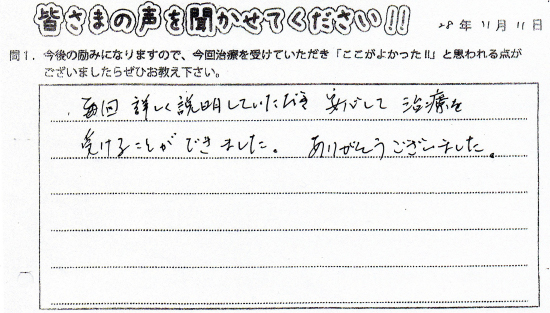 皆さまの声を聞かせてください!!
28年 11月 11日
問1. 今後の励みになりますので、今回治療を受けていただき「ここがよかった!!」と思われる点が
ございましたらぜひお教え下さい。
毎回 詳しく説明していただき 安心して 治療を
受けることができました。 ありがとうございました。